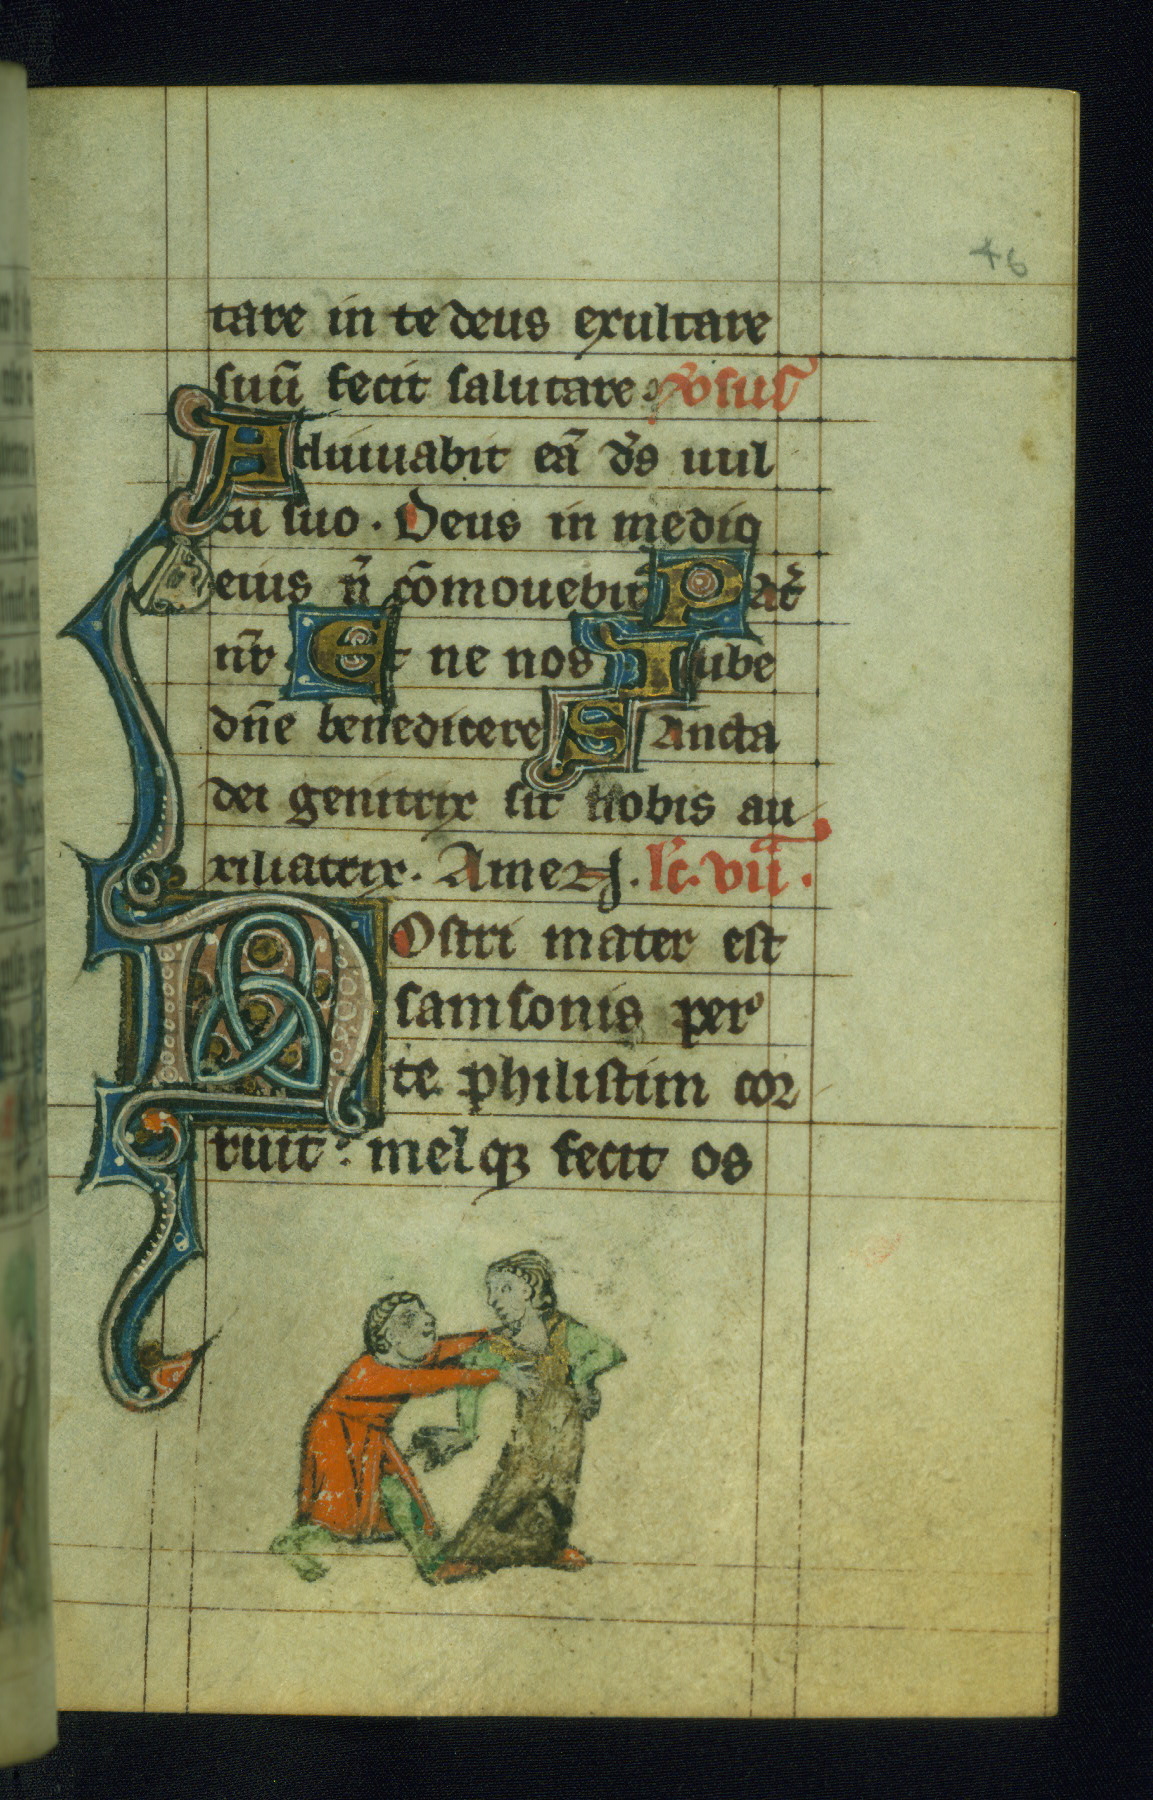 46
tare in te deus exultare
suū fecit salutare. v̓sus
Adiuuabit eā ds̄ uul
tu suo. Deus in medio
eius n̄ cōmouebit̓ Pat̓
nr̄ Et ne nos Iube
dn̄e benedicere Sancta
dei genitrix sit nobis au
xiliatrix. Amen. lc̄. vii.
Nostri mater est
samsonis per
te philistim cor
ruit: melqꝫ fecit os